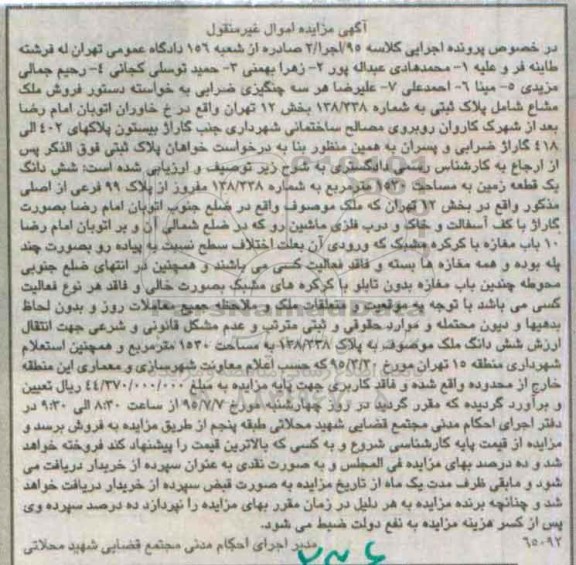 آگهی مزایده اموال غیرمنقول
در خصوص پرونده اجرایی کلاسه ۹۵/اجرا/۲ صادره از شعبه ۱۵۶ دادگاه عمومی تهران له فرشته
طاینه فر و علیه ۱- محمدهادی عبداله پور ۲- زهرا بهمنی ۳- حمید توسلی کجانی ٤- رحیم جمالی
مزیدی ۵- مینا ٦- احمدعلی ۷- علیرضا هر سه چنگیزی ضرابی به خواسته دستور فروش ملک
مشاع شامل پلاک ثبتی به شماره ۱۳۸/۳۳۸ بخش ۱۲ تهران واقع در خ خاوران اتوبان امام رضا
بعد از شهرک کاروان روبروی مصالح ساختمانی شهرداری جنب گاراژ بیستون پلاکهای ٤۰۲ الی
٤۱۸ گاراژ ضرابی و پسران به همین منظور بنا به درخواست خواهان پلاک ثبتی فوق الذکر پس
از ارجاع به کارشناس رسمی دادگستری به شرح زیر توصیف و ارزیابی شده است: شش دانگ
یک قطعه زمین به مساحت ۱۵۳۰ مترمربع به شماره ۱۳۸/۳۳۸ مفروز از پلاک ۹۹ فرعی از اصلی
مذکور واقع در بخش ۱۲ تهران که ملک موصوف واقع در ضلع جنوب اتوبان امام رضا بصورت
گاراژ با کف آسفالت و خاک و درب فلزی ماشین رو که در ضلع شمالی آن و بر اتوبان امام رضا
۱۰ باب مغازه با کرکره مشبک که ورودی آن بعلت اختلاف سطح نسبت به پیاده رو بصورت چند
پله بوده و همه مغازه ها بسته و فاقد فعالیت کسی می باشند و همچنین در انتهای ضلع جنوبی
محوطه چندین باب مغازه بدون تابلو با کرکره های مشبک بصورت خالی و فاقد هر نوع فعالیت
کسی می باشد با توجه به موقعیت و متعلقات ملک و ملاحظه جمیع معاملات روز و بدون لحاظ
بدهیها و دیون محتمله و موارد حقوقی و ثبتی مترتب و عدم مشکل قانونی و شرعی جهت انتقال
ارزش شش دانگ ملک موصوف به پلاک ۱۳۸/۳۳۸ به مساحت ۱۵۳۰ مترمربع و همچنین استعلام
شهرداری منطقه ۱۵ تهران مورخ ۹۵/۲/۲۰ که حسب اعلام معاونت شهرسازی و معماری این منطقه
خارج از محدوده واقع شده و فاقد کاربری جهت پایه مزایده به مبلغ ٤٤/۳۷۰/۰۰۰/۰۰۰ ریال تعیین
و برآورد گردیده که مقرر گردید در روز چهارشنبه مورخ ۹۵/۷/۷ از ساعت ۸:۳۰ الی ۹:۳۰ در
دفتر اجرای احکام مدنی مجتمع قضایی شهید محلاتی طبقه پنجم از طریق مزایده به فروش برسد و
مزایده از قیمت پایه کارشناسی شروع و به کسی که بالاترین قیمت را پیشنهاد کند فروخته خواهد
شد و ده درصد بهای مزایده فی المجلس و به صورت نقدی به عنوان سپرده از خریدار دریافت می
شود و مابقی ظرف مدت یک ماه از تاریخ مزایده به صورت قبض سپرده از خریدار دریافت خواهد
شد و چنانچه برنده مزایده به هر دلیل در زمان مقرر بهای مزایده را نپردازد ده درصد سپرده وی
پس از کسر هزینه مزایده به نفع دولت ضبط می شود.
٦۵۰۹۲ مدیر اجرای احکام مدنی مجتمع قضایی شهید محلاتی